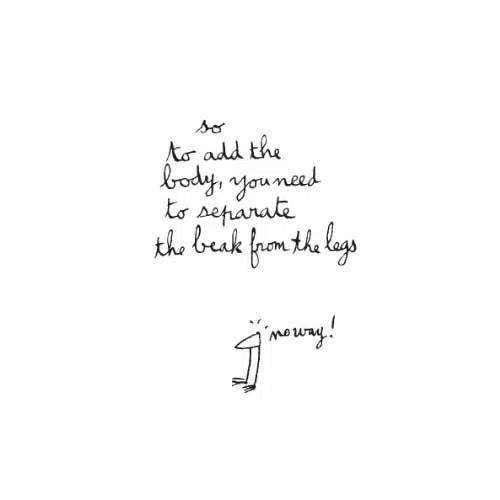 so
to add the
body, you need
to separate
the beak from the legs
no way!